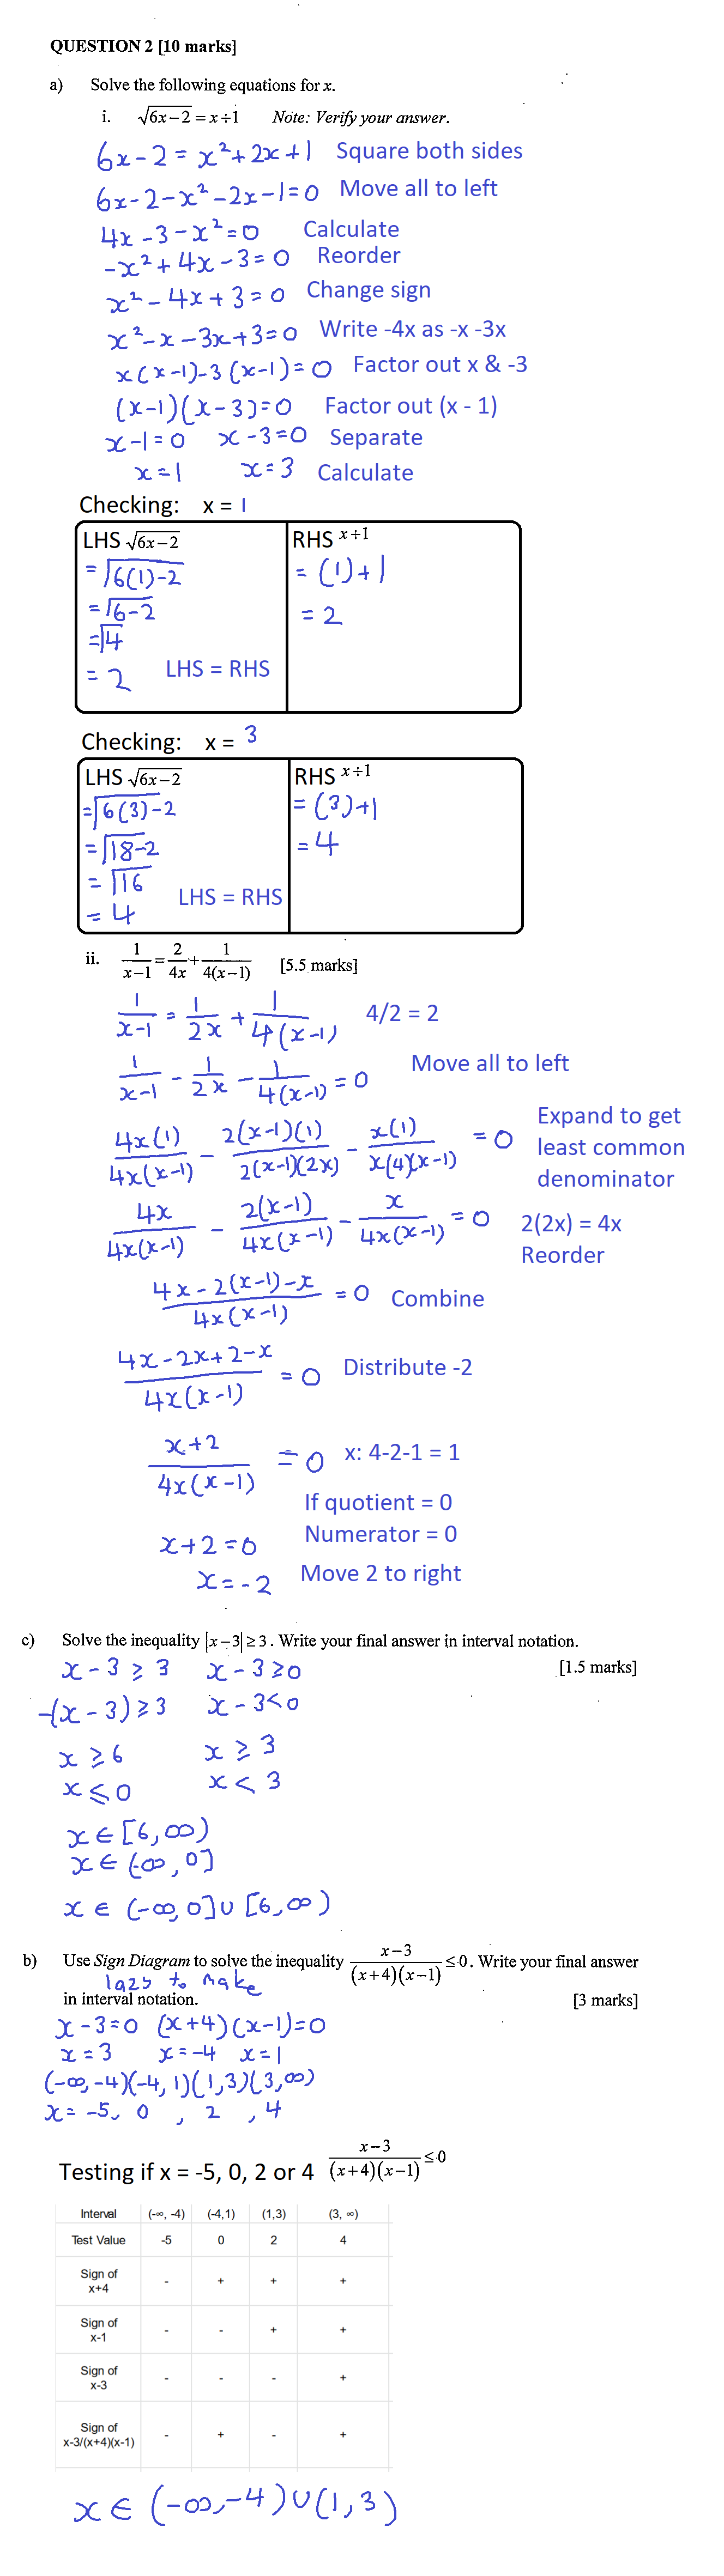 QUESTION 2 [10 marks]
a) Solve the following equations for x.
i. √(6x−2) = x+1 Note: Verify your answer.
6x - 2 = x² + 2x + 1 Square both sides
6x - 2 - x² - 2x - 1 = 0 Move all to left
4x - 3 - x² = 0 Calculate
-x² + 4x - 3 = 0 Reorder
x² - 4x + 3 = 0 Change sign
x² - x - 3x + 3 = 0 Write -4x as -x -3x
x(x-1)-3(x-1) = 0 Factor out x & -3
(x-1)(x-3) = 0 Factor out (x - 1)
x-1=0 x-3=0 Separate
x=1 x=3 Calculate
Checking: x = 1
LHS √(6x−2) RHS x+1
= √(6(1)-2) = (1)+1
= √(6-2) = 2
= √4
= 2 LHS = RHS
Checking: x = 3
LHS √(6x−2) RHS x+1
= √(6(3)-2) = (3)+1
= √(18-2) = 4
= √16
= 4 LHS = RHS
ii. 1/(x−1) = 2/4x + 1/(4(x−1)) [5.5 marks]
1/(x-1) = 1/2x + 1/(4(x-1)) 4/2 = 2
1/(x-1) - 1/2x - 1/(4(x-1)) = 0 Move all to left
4x(1)/(4x(x-1)) - 2(x-1)(1)/(2(x-1)(2x)) - x(1)/(x(4)(x-1)) = 0 Expand to get
least common
denominator
4x/(4x(x-1)) - 2(x-1)/(4x(x-1)) - x/(4x(x-1)) = 0 2(2x) = 4x
Reorder
(4x-2(x-1)-x)/(4x(x-1)) = 0 Combine
(4x-2x+2-x)/(4x(x-1)) = 0 Distribute -2
(x+2)/(4x(x-1)) = 0 x: 4-2-1 = 1
If quotient = 0
x+2=0 Numerator = 0
x=-2 Move 2 to right
c) Solve the inequality |x−3| ≥ 3. Write your final answer in interval notation.
[1.5 marks]
x-3 ≥ 3 x-3≥0
-(x-3)≥3 x-3<0
x ≥ 6 x ≥ 3
x ≤ 0 x < 3
x ∈ [6, ∞)
x ∈ (-∞, 0]
x ∈ (-∞, 0] ∪ [6, ∞)
b) Use Sign Diagram to solve the inequality (x−3)/((x+4)(x−1)) ≤ 0. Write your final answer
lazy to make
in interval notation. [3 marks]
x-3=0 (x+4)(x-1)=0
x=3 x=-4 x=1
(-∞,-4)(-4,1)(1,3)(3,∞)
x= -5, 0 , 2 , 4
Testing if x = -5, 0, 2 or 4 (x−3)/((x+4)(x−1)) ≤ 0
Interval (-∞, -4) (-4,1) (1,3) (3, ∞)
Test Value -5 0 2 4
Sign of
x+4 - + + +
Sign of
x-1 - - + +
Sign of
x-3 - - - +
Sign of
x-3/(x+4)(x-1) - + - +
x ∈ (-∞,-4) ∪ (1,3)